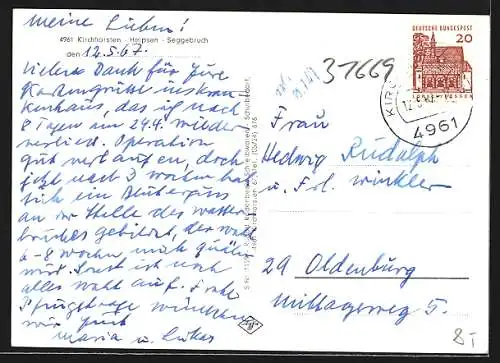 Meine Lieben!
4961 Kirchhorsten - Helpsen - Seggebruch
den 12.5.67.
Vielen Dank für Eure
Kartengrüße ins Kran-
kenhaus, das ich nach
8 Tagen am 24.4. wieder
verliess. Operation
gut verlaufen, doch
jetzt nach 3 Wochen hat
sich ein Bluterguss
an der Stelle des
bruches gebildet, der wohl
6-8 Wochen, mich quälen
wird. Sonst ist noch
alles wohl auf. Frohe
Pfingsttage wünschen
wir Euch
Maria u. Lukas
37669
DEUTSCHE BUNDESPOST
20
4961
Frau
Hedwig Rudolph
u. Frl. Winkler
29 Oldenburg
Mittagsweg 5.
8.-